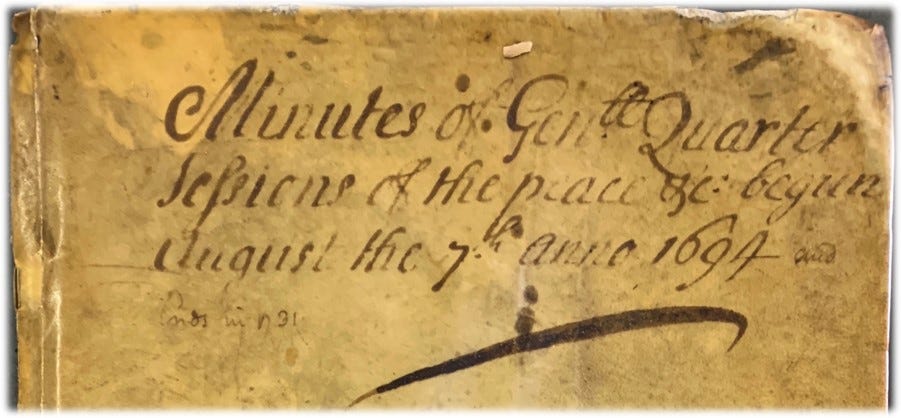 Minutes of Gen.tt Quarter
Sessions of the peace &c: begun
August the 7.th anno 1694 and
Ends in 1731